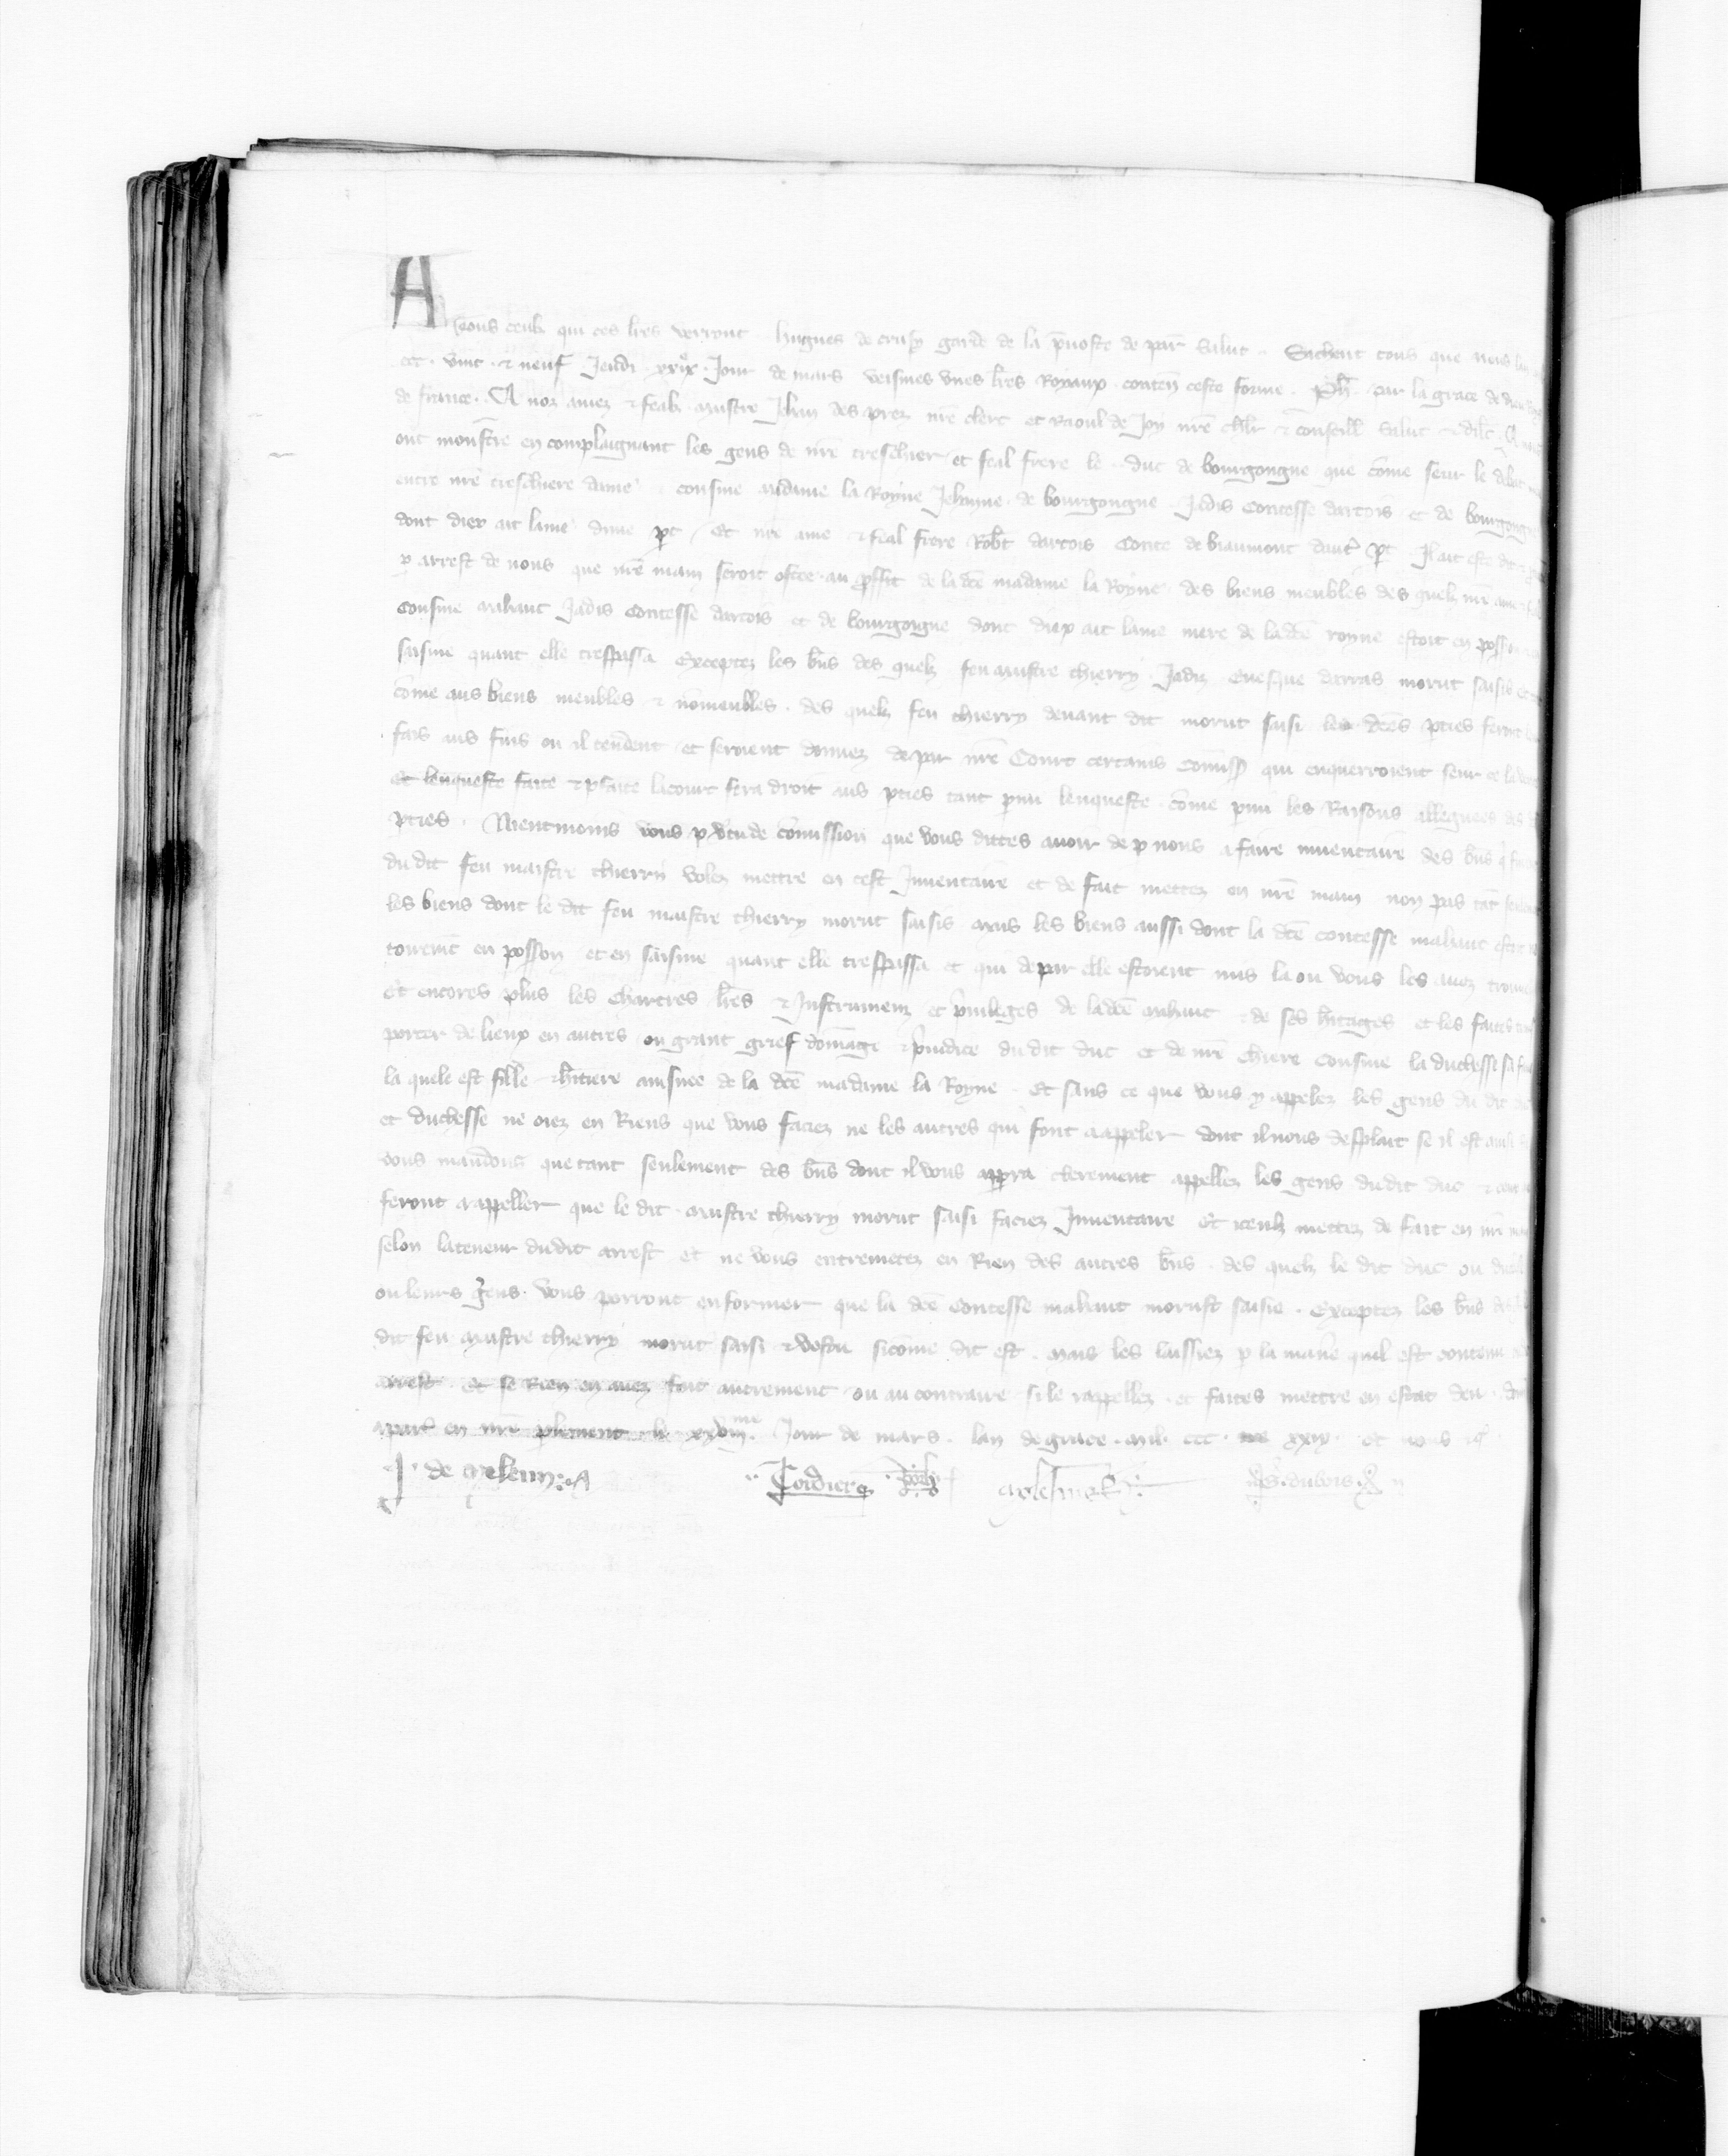 A touz ceulz qui ces lres verront hugues de crusy garde de la pruoste de par salut. Sachent touz que nous
ccc. vint. & neuf Jeudi xxix. Jour de mars veismes unes lres Royaux contenu ceste forme. Ph. par la grace de dieu
de france. A noz amez & feals maistre Jehan des prez nre clerc et Raoul de Joy nre chlr & conseill salut & dil.
ont monstre en complaignant les gens de nre treschier et feal frere le duc de bourgongne que come seur le debat
entre nre treschiere dame & cousine madame la Royne Jehanne de bourgongne Jadis Contesse dartois et de bourgongne
dont diex ait lame dune pt Et nre ame & feal frere Robt dartois Conte de biaumont dautr pt Il ait este
p arrest de nous que nre main seroit ostee au proffit de la dce madame la Royne des biens meubles des quelz nre
cousine mahaut Jadis Contesse dartois et de bourgoigne dont diex ait lame mere de la dce royne estoit en
saisine quant elle trespassa Exceptez les bns des quelz feu maistre thierry Jadiz euesque darras morut saisis
come aus biens meubles & nonmeubles. des quelz feu thierry deuant dit morut saisi les dces pties feront
fais aus fins ou il tendent et seroient donnez de par nre Court certains comiss qui enquerroient seur ce
Et lenqueste faite & pfaite la court fera droit aus pties tant pmi lenqueste come pmi les Raisons alleguees des
pties. Nientmoins vous p vtu de comission que vous dittes auoir de p nous a faire inuentaire des bns
du dit feu maistre thierry volez mettre en cest Inuentaire et de fait mettez en nre main non pas tat
les biens dont le dit feu maistre thierry morut saisis mais les biens aussi dont la dce contesse mahaut estoit
en posson et en saisine quant elle trespassa et qui de par elle estoient mis la ou vous les auez
Et encores plus les Chartres lres & Instrumenz et priuileges de la dce mahaut & de ses hitages et les faites
porter de lieux en autres ou grant grief domage & preiudice du dit duc et de nre chiere cousine la duchesse
la quele est fille & hitiere ainsnee de la dce madame la Royne Et sans ce que vous y appelez les gens du dit
et duchesse ne oiez en Riens que vous faciez ne les autres qui font a appeler dont il nous desplait se il est
vous mandons que tant seulement des bns dont il vous apprra clerement appellez les gens dudit duc &
feront a appeller que le dit maistre thierry morut saisi faciez Inuentaire et iceulz mettez de fait en nre
selon la teneur dudit arrest et ne vous entremetez en Rien des autres bns. des quelz le dit duc ou
ou leurs gens. vous porront enformer que la dce Contesse mahaut morust saisie. Exceptez les bns
dit feu maistre thierry morut saisi & vestu sicome dit est. mais les laissiez p la manre quil est contenu
arrest. Et se Rien en auez fait autrement ou au contraire si le rappellez et faites mettre en estat deu.
a paris en nre plement le xxviii.me Jour de mars. lan de grace. mil. ccc. xxix. et nous
J. de meleun: Cordier dubois